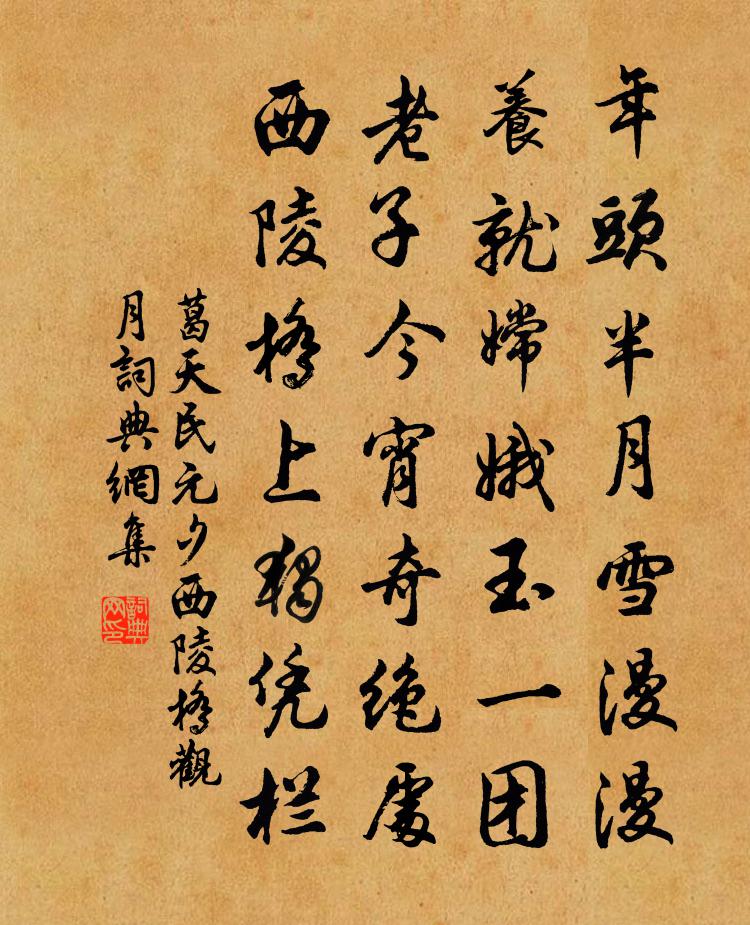 年頭半月雪漫漫
養就嫦娥玉一团
老子今宵奇絶處
西陵橋上獨凭栏
葛天民元夕西陵橋觀
月詞典網集
詞典
网印